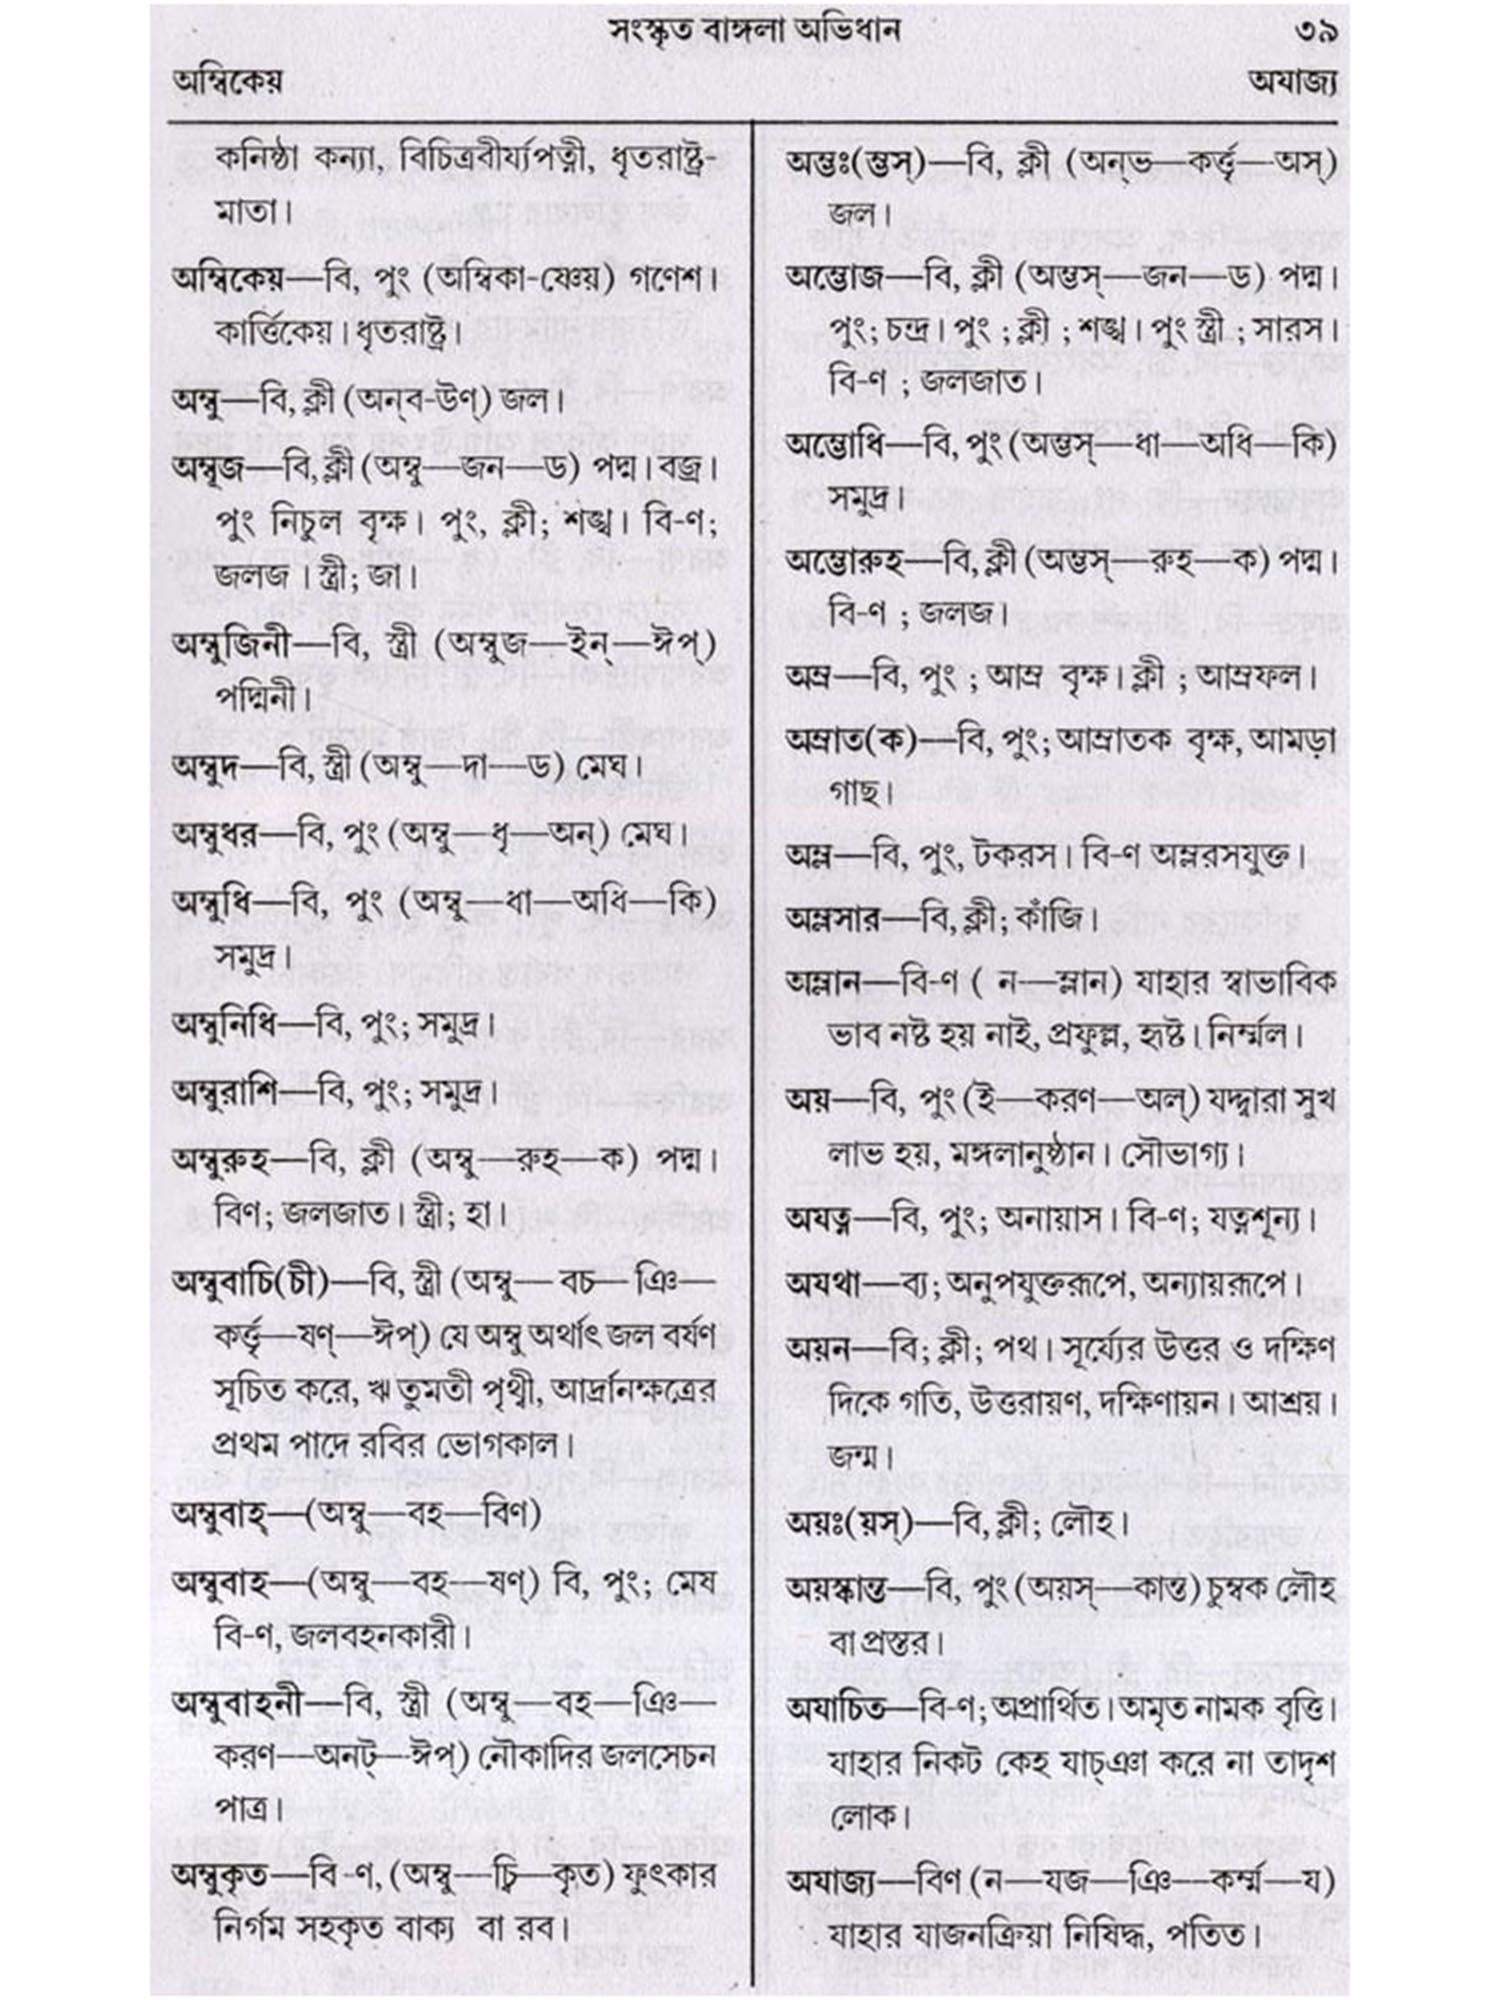 সংস্কৃত বাঙ্গলা অভিধান ৩৯
অম্বিকেয় অযাজ্য
কনিষ্ঠা কন্যা, বিচিত্রবীর্য্যপত্নী, ধৃতরাষ্ট্র-
মাতা।
অম্বিকেয়—বি, পুং (অম্বিকা-ষ্ণেয়) গণেশ।
কার্ত্তিকেয়। ধৃতরাষ্ট্র।
অম্বু—বি, ক্লী (অন্‌ব-উণ্) জল।
অম্বুজ—বি, ক্লী (অম্বু—জন—ড) পদ্ম। বজ্র।
পুং নিচুল বৃক্ষ। পুং, ক্লী; শঙ্খ। বি-ণ;
জলজ । স্ত্রী; জা।
অম্বুজিনী—বি, স্ত্রী (অম্বুজ—ইন্—ঈপ্)
পদ্মিনী।
অম্বুদ—বি, স্ত্রী (অম্বু—দা—ড) মেঘ।
অম্বুধর—বি, পুং (অম্বু—ধৃ—অন্) মেঘ।
অম্বুধি—বি, পুং (অম্বু—ধা—অধি—কি)
সমুদ্র।
অম্বুনিধি—বি, পুং; সমুদ্র।
অম্বুরাশি—বি, পুং; সমুদ্র।
অম্বুরুহ—বি, ক্লী (অম্বু—রুহ—ক) পদ্ম।
বিণ; জলজাত। স্ত্রী; হা।
অম্বুবাচি(চী)—বি, স্ত্রী (অম্বু— বচ— ঞি—
কর্ত্তৃ—ষণ্—ঈপ্) যে অম্বু অর্থাৎ জল বর্ষণ
সূচিত করে, ঋতুমতী পৃথ্বী, আর্দ্রানক্ষত্রের
প্রথম পাদে রবির ভোগকাল।
অম্বুবাহ্—(অম্বু—বহ—বিণ)
অম্বুবাহ—(অম্বু—বহ—ষণ্) বি, পুং; মেষ
বি-ণ, জলবহনকারী।
অম্বুবাহনী—বি, স্ত্রী (অম্বু—বহ—ঞি—
করণ—অনট্—ঈপ্) নৌকাদির জলসেচন
পাত্র।
অম্বুকৃত—বি -ণ, (অম্বু—চ্বি—কৃত) ফুৎকার
নির্গম সহকৃত বাক্য বা রব।
অম্ভঃ(ম্ভস্)—বি, ক্লী (অন্‌ভ—কর্ত্তৃ—অস্)
জল।
অম্ভোজ—বি, ক্লী (অম্ভস্—জন—ড) পদ্ম।
পুং; চন্দ্র। পুং ; ক্লী ; শঙ্খ। পুং স্ত্রী ; সারস।
বি-ণ ; জলজাত।
অম্ভোধি—বি, পুং (অম্ভস্—ধা—অধি—কি)
সমুদ্র।
অম্ভোরুহ—বি, ক্লী (অম্ভস্—রুহ—ক) পদ্ম।
বি-ণ ; জলজ।
অম্র—বি, পুং ; আম্র বৃক্ষ। ক্লী ; আম্রফল।
অম্রাত(ক)—বি, পুং; আম্রাতক বৃক্ষ, আমড়া
গাছ।
অম্ল—বি, পুং, টকরস। বি-ণ অম্লরসযুক্ত।
অম্লসার—বি, ক্লী; কাঁজি।
অম্লান—বি-ণ ( ন—ম্লান) যাহার স্বাভাবিক
ভাব নষ্ট হয় নাই, প্রফুল্ল, হৃষ্ট। নির্ম্মল।
অয়—বি, পুং (ই—করণ—অল্) যদ্দ্বারা সুখ
লাভ হয়, মঙ্গলানুষ্ঠান। সৌভাগ্য।
অযত্ন—বি, পুং; অনায়াস। বি-ণ; যত্নশূন্য।
অযথা—ব্য; অনুপযুক্তরূপে, অন্যায়রূপে।
অয়ন—বি; ক্লী; পথ। সূর্য্যের উত্তর ও দক্ষিণ
দিকে গতি, উত্তরায়ণ, দক্ষিণায়ন। আশ্রয়।
জন্ম।
অয়ঃ(য়স্)—বি, ক্লী; লৌহ।
অয়স্কান্ত—বি, পুং (অয়স্—কান্ত) চুম্বক লৌহ
বা প্রস্তর।
অযাচিত—বি-ণ; অপ্রার্থিত। অমৃত নামক বৃত্তি।
যাহার নিকট কেহ যাচ্ঞা করে না তাদৃশ
লোক।
অযাজ্য—বিণ (ন—যজ—ঞি—কর্ম্ম—য)
যাহার যাজনক্রিয়া নিষিদ্ধ, পতিত।